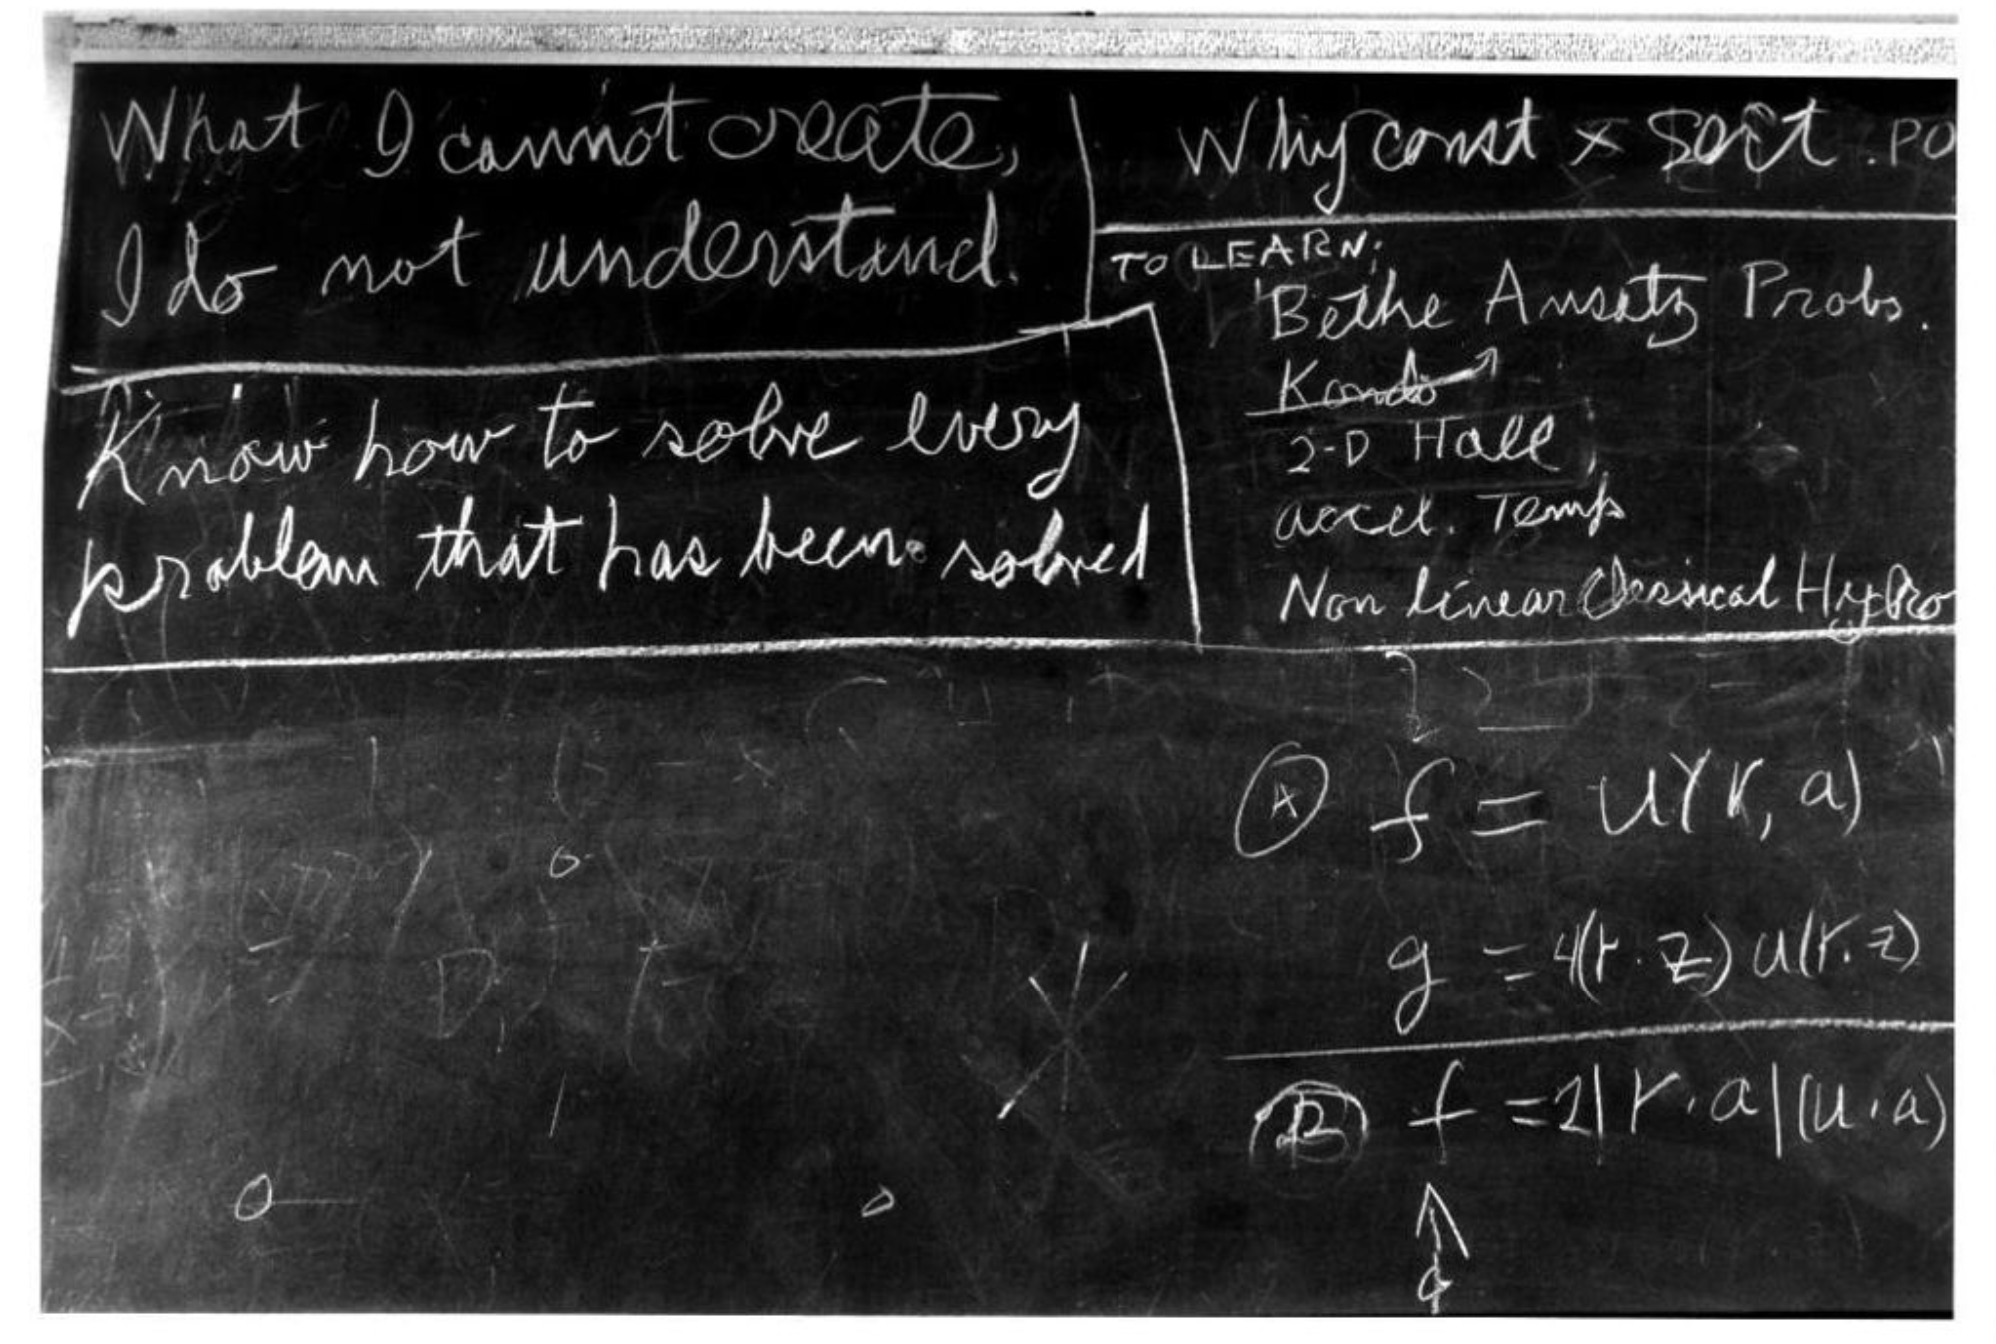 What I cannot create,
I do not understand.
Know how to solve every
problem that has been solved
Why const × sort . PO
TO LEARN:
Bethe Ansatz Probs.
Kondo
2-D Hall
accel. Temp
Non linear Classical Hydro
Ⓐ f = u(r, a)
g = 4(r · z) u(r · z)
Ⓑ f = 2|r · a|(u · a)